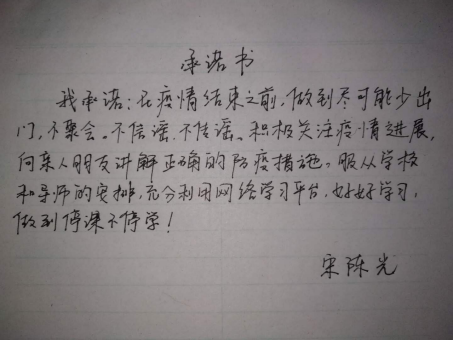 承诺书
我承诺：在疫情结束之前，做到尽可能少出
门，不聚会。不信谣、不传谣。积极关注疫情进展，
向亲人朋友讲解正确的防疫措施。服从学校
和导师的安排，充分利用网络学习平台，好好学习，
做到停课不停学！
宋陈光